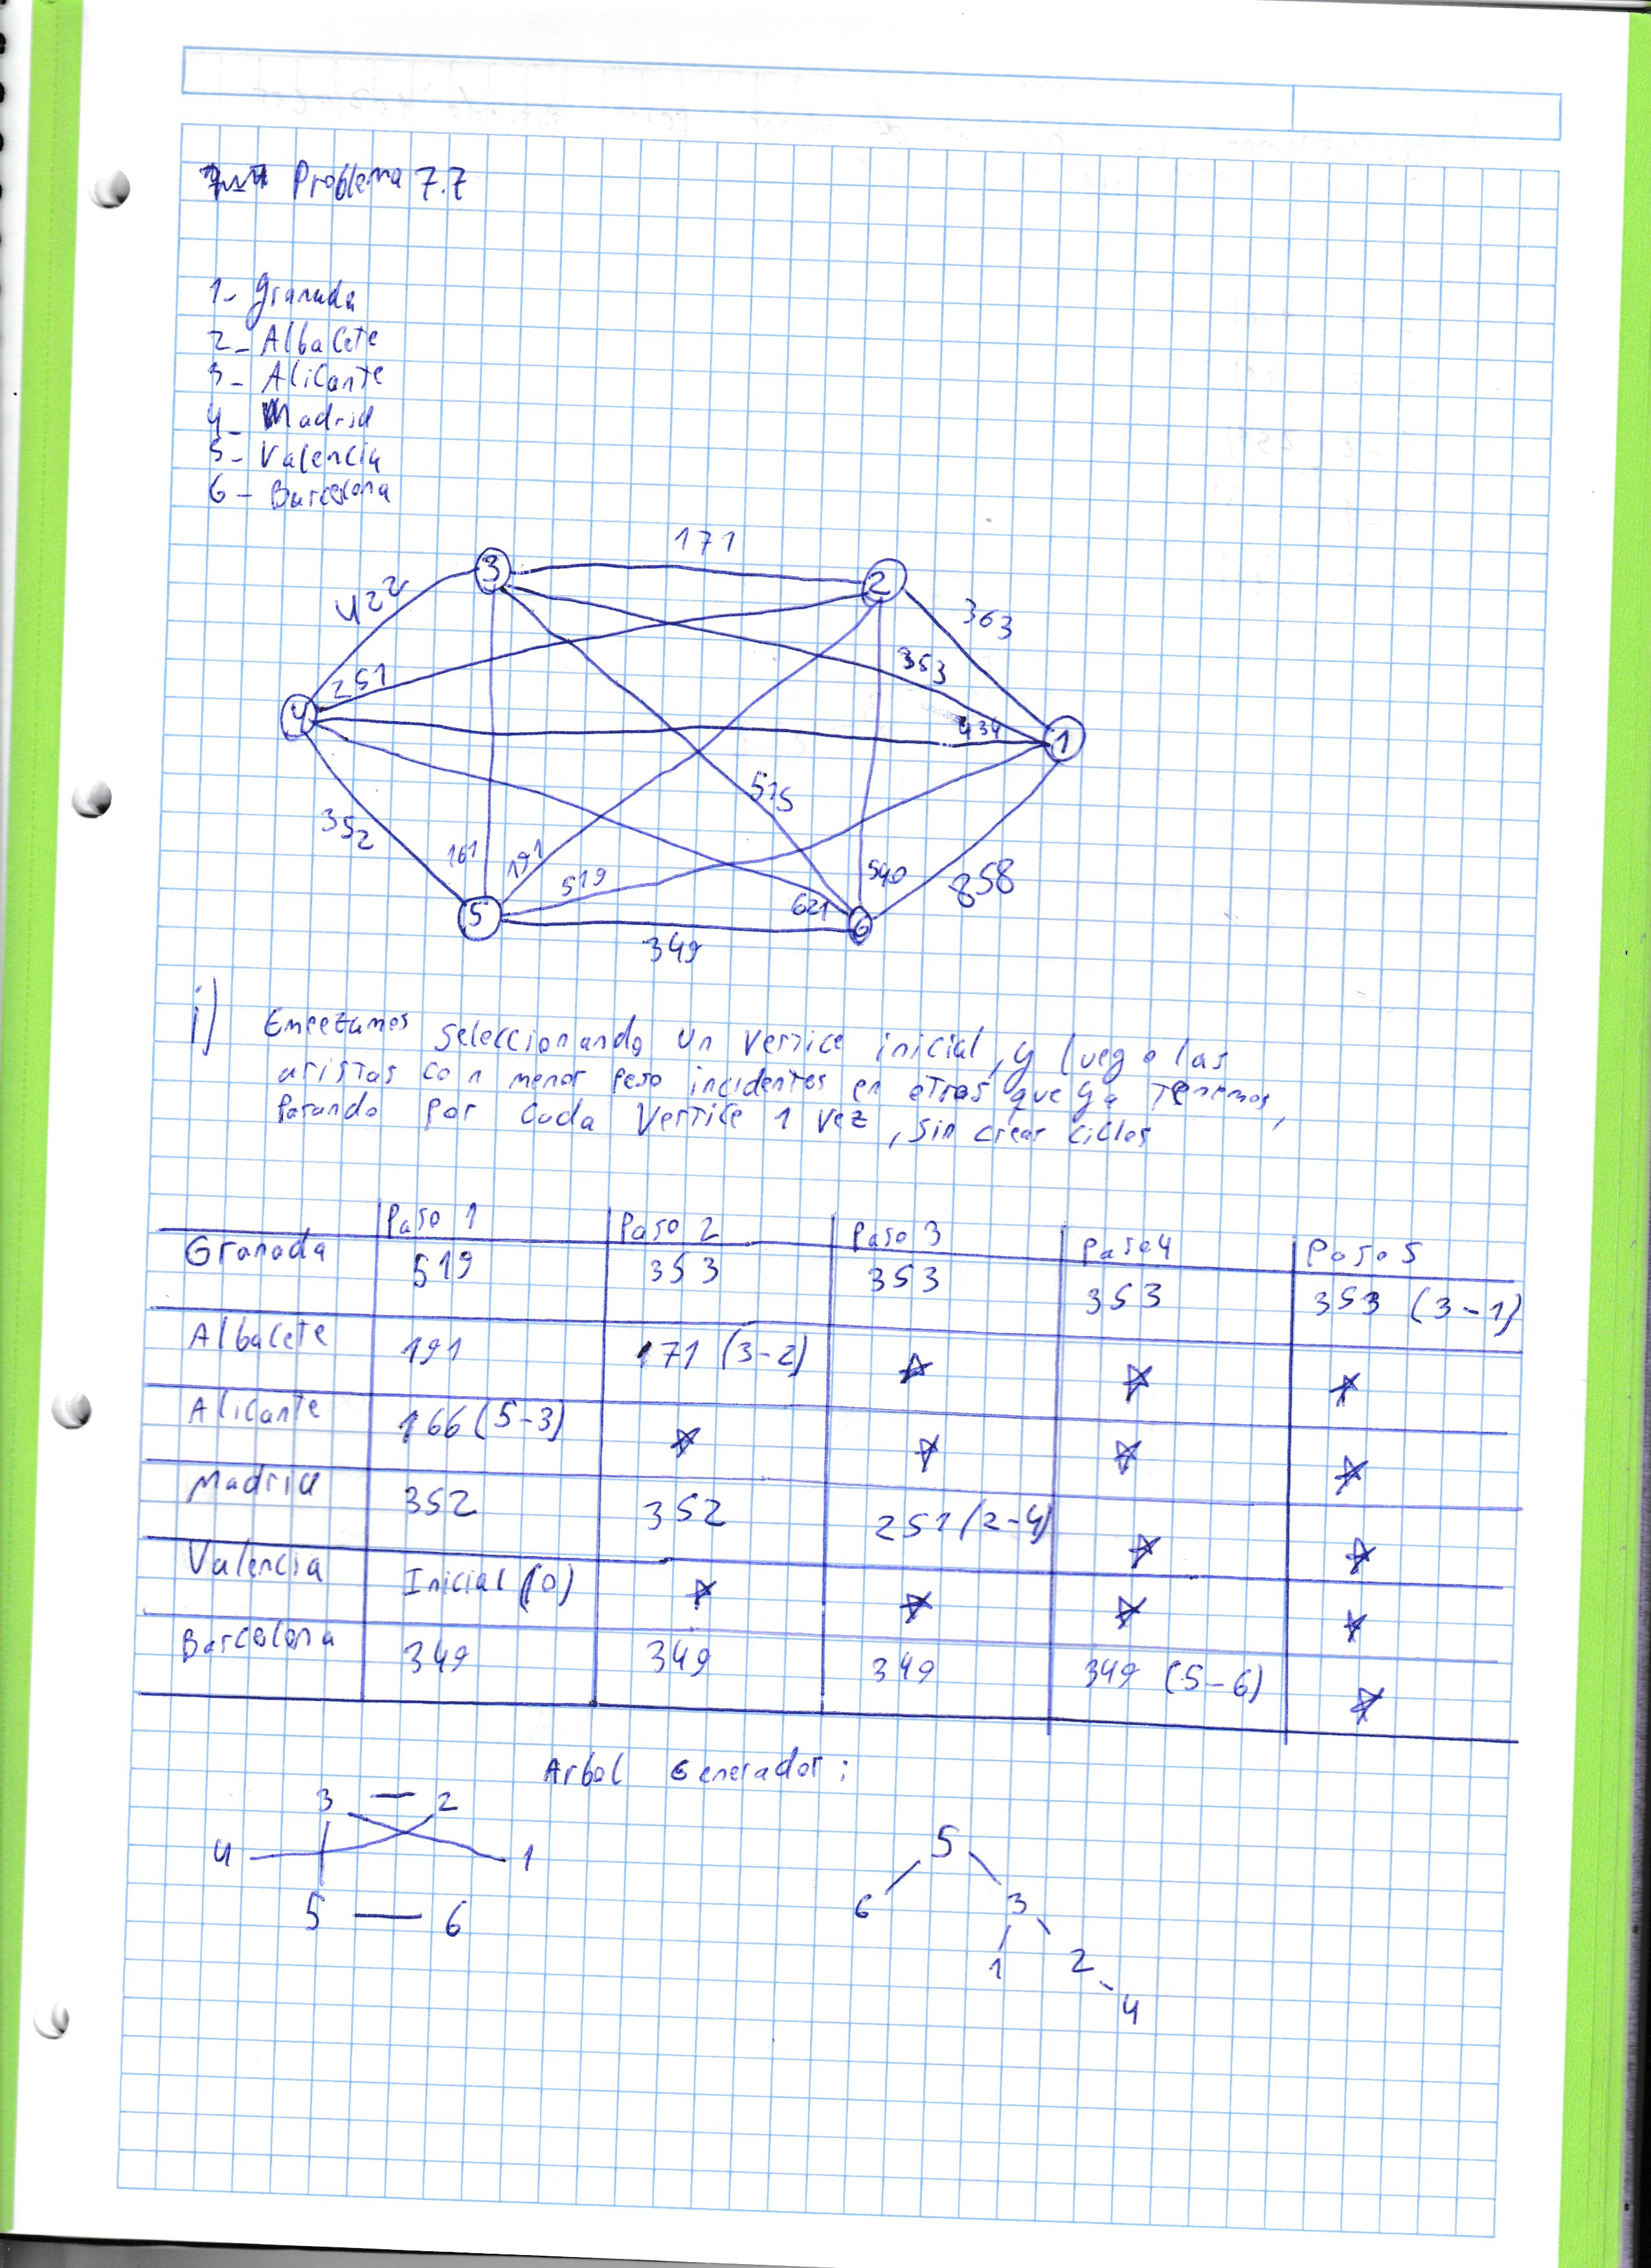 Problema 7.7
1- Granada
2- Albacete
3- Alicante
4- Madrid
5- Valencia
6- Barcelona
171
422
363
353
251
434
515
352
161
191
519
540
858
621
349
3
2
4
1
5
6
i) Empezamos seleccionando un vertice inicial, y luego las
aristas con menor peso incidentes en otras que ya tenemos,
pasando por cada vertice 1 vez, sin crear ciclos
Paso 1 Paso 2 Paso 3 Paso 4 Paso 5
Granada 519 353 353 353 353 (3-1)
Albacete 191 171 (3-2) ☆ ☆ ☆
Alicante 166 (5-3) ☆ ☆ ☆ ☆
Madrid 352 352 251 (2-4) ☆ ☆
Valencia Inicial (0) ☆ ☆ ☆ ☆
Barcelona 349 349 349 349 (5-6) ☆
Arbol Generador:
3 — 2
4 1
5 — 6
5
6 3
1 2
4